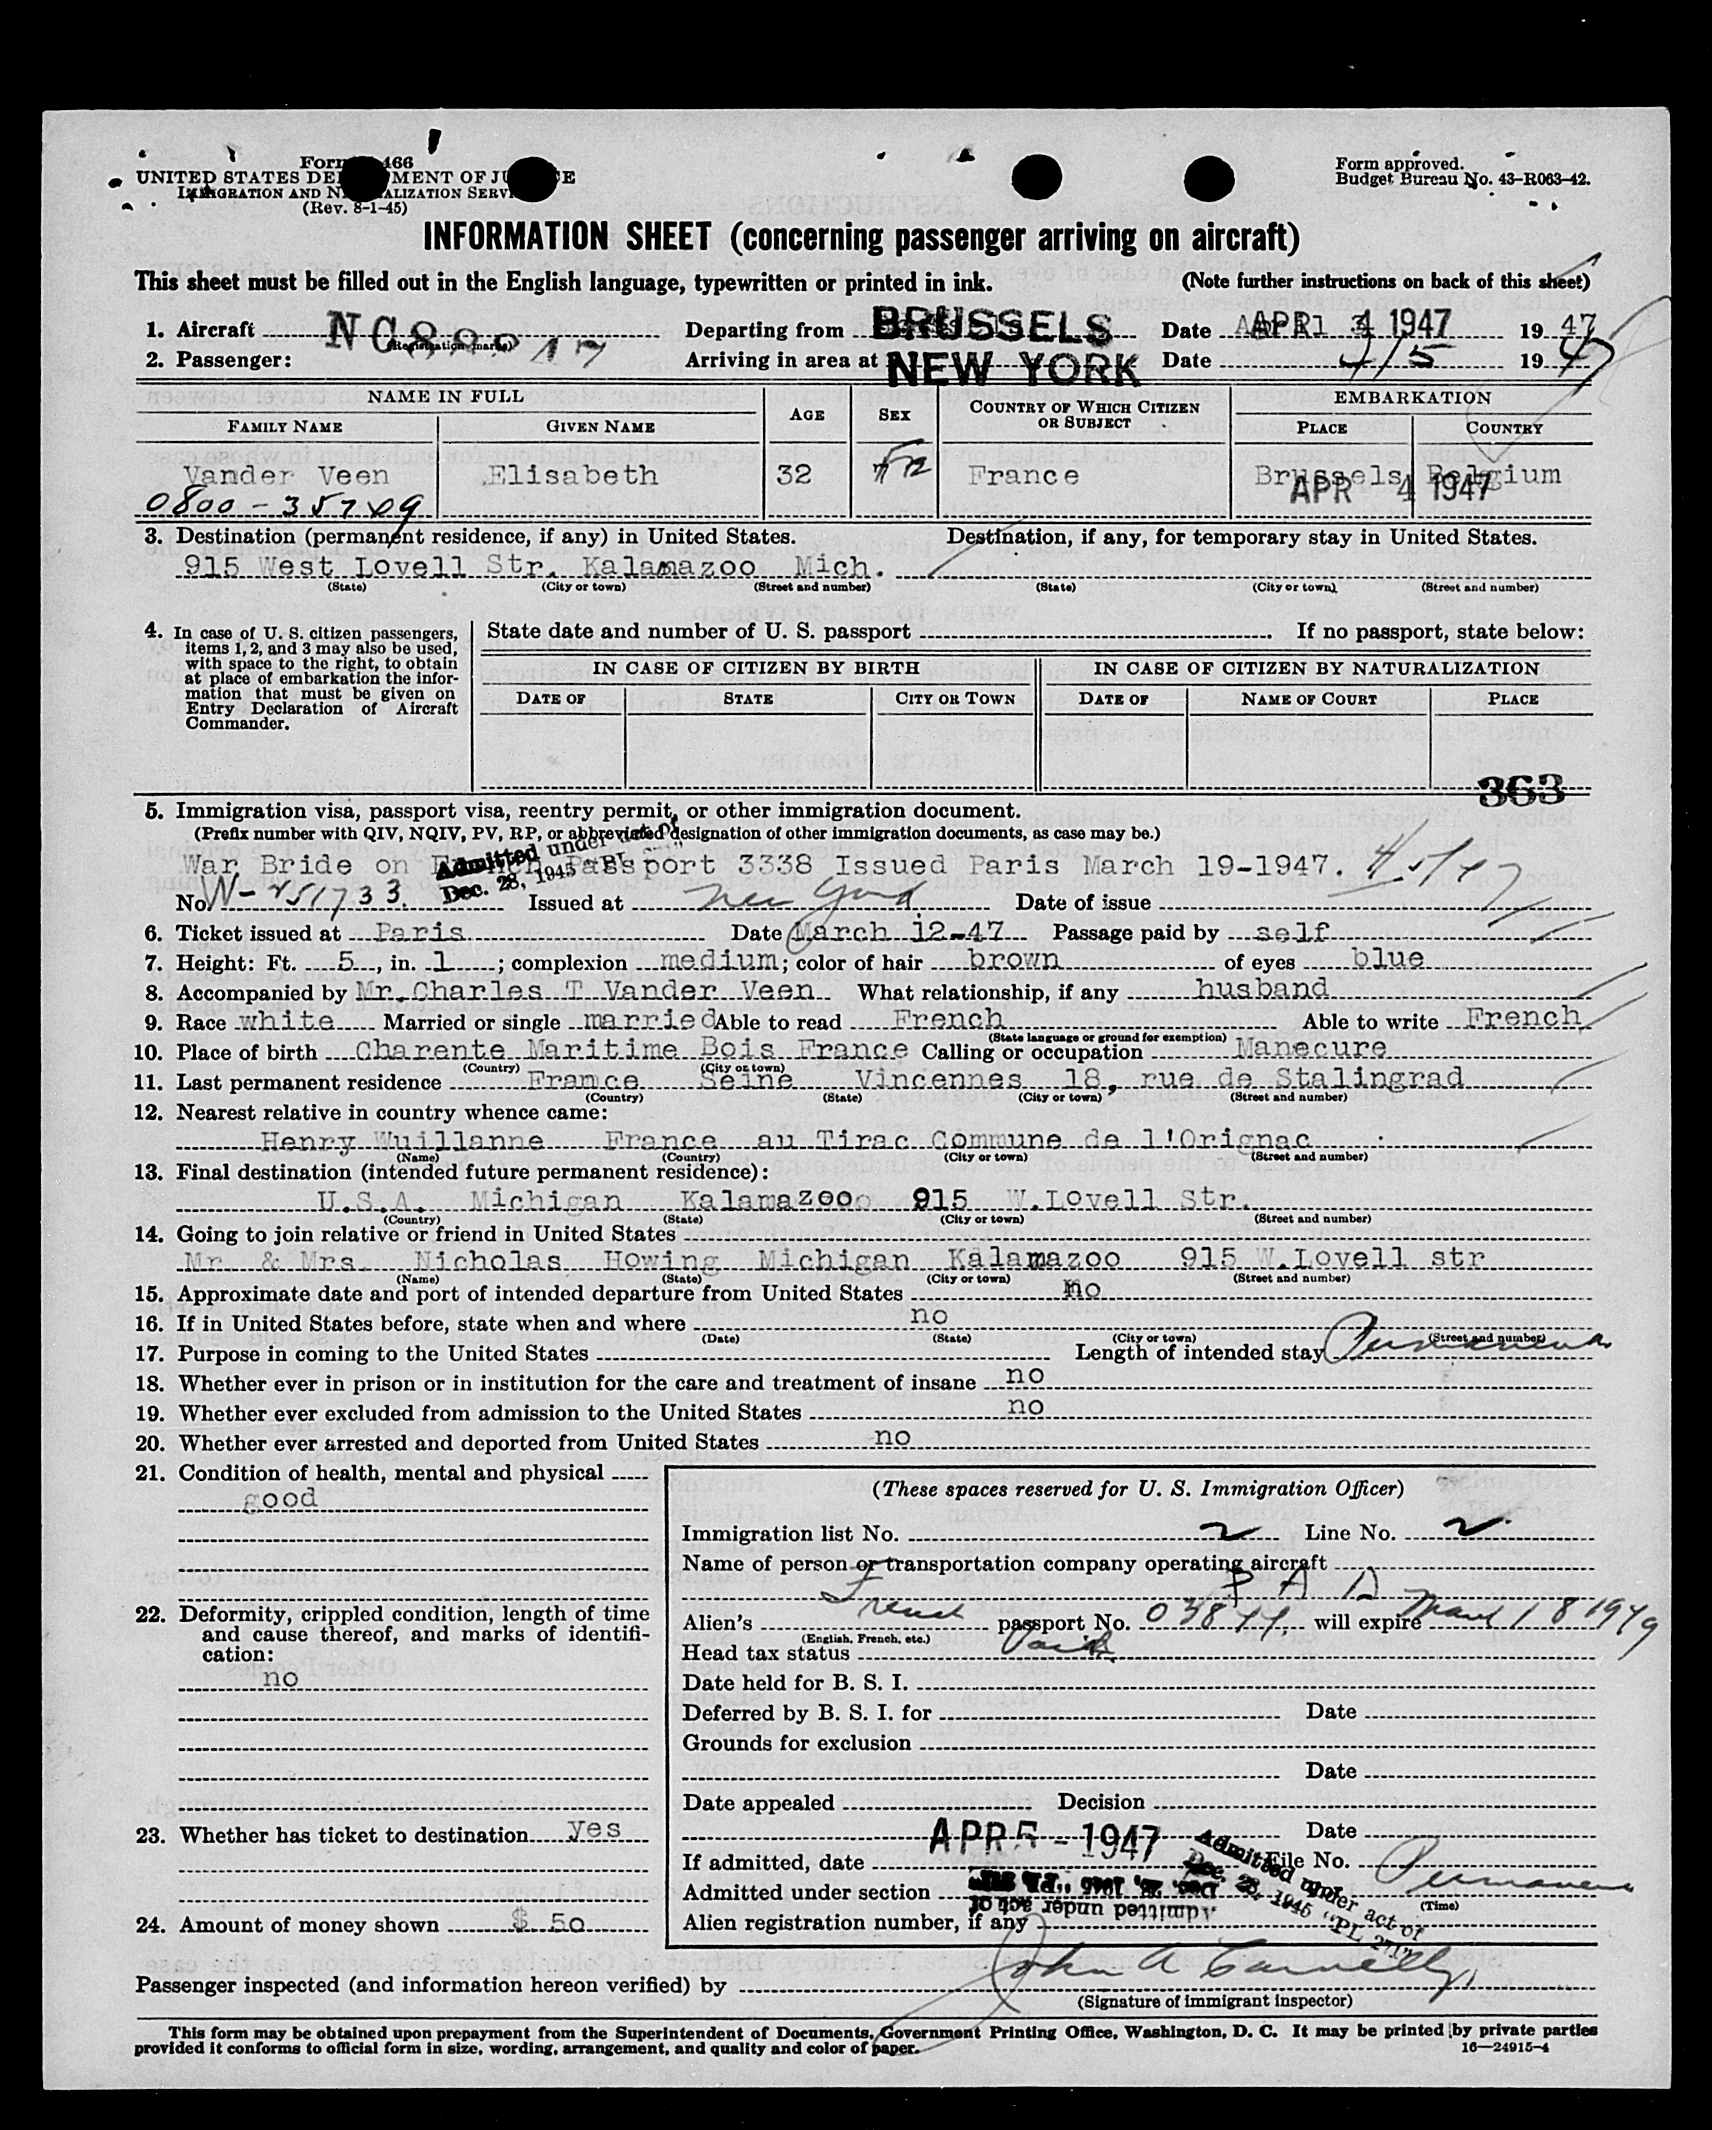 Form 466
UNITED STATES DEPARTMENT OF JUSTICE
IMMIGRATION AND NATURALIZATION SERVICE
(Rev. 8-1-45)
Form approved.
Budget Bureau No. 43-R063-42.
INFORMATION SHEET (concerning passenger arriving on aircraft)
This sheet must be filled out in the English language, typewritten or printed in ink. (Note further instructions on back of this sheet)
1. Aircraft (Registration marks) Departing from BRUSSELS Date APR 4 1947 19 47
2. Passenger: Arriving in area at NEW YORK Date 4/5 19 47
NAME IN FULL AGE SEX COUNTRY OF WHICH CITIZEN OR SUBJECT EMBARKATION
FAMILY NAME GIVEN NAME PLACE COUNTRY
Vander Veen Elisabeth 32 France Brussels Belgium
0800-35709 APR 4 1947
3. Destination (permanent residence, if any) in United States. Destination, if any, for temporary stay in United States.
915 West Lovell Str. Kalamazoo Mich.
(State) (City or town) (Street and number) (State) (City or town) (Street and number)
4. In case of U. S. citizen passengers, items 1, 2, and 3 may also be used, with space to the right, to obtain at place of embarkation the information that must be given on Entry Declaration of Aircraft Commander.
State date and number of U. S. passport If no passport, state below:
IN CASE OF CITIZEN BY BIRTH IN CASE OF CITIZEN BY NATURALIZATION
DATE OF STATE CITY OR TOWN DATE OF NAME OF COURT PLACE
363
5. Immigration visa, passport visa, reentry permit, or other immigration document.
(Prefix number with QIV, NQIV, PV, RP, or abbreviated designation of other immigration documents, as case may be.)
War Bride on French Passport 3338 Issued Paris March 19-1947. 4/5/47
Admitted under act of
Dec. 28, 1945 "PL 271"
No. W-251733. Issued at New York Date of issue
6. Ticket issued at Paris Date March 12-47 Passage paid by self
7. Height: Ft. 5, in. 1; complexion medium; color of hair brown of eyes blue
8. Accompanied by Mr. Charles T Vander Veen What relationship, if any husband
9. Race white Married or single married Able to read French Able to write French
(State language or ground for exemption)
10. Place of birth Charente Maritime Bois France Calling or occupation Manecure
(Country) (City or town)
11. Last permanent residence France Seine Vincennes 18, rue de Stalingrad
(Country) (State) (City or town) (Street and number)
12. Nearest relative in country whence came:
Henry Wuillanne France au Tirac Commune de l'Orignac
(Name) (Country) (City or town) (Street and number)
13. Final destination (intended future permanent residence):
U.S.A. Michigan Kalamazoo 915 W.Lovell Str.
(Country) (State) (City or town) (Street and number)
14. Going to join relative or friend in United States
Mr. & Mrs. Nicholas Howing Michigan Kalamazoo 915 W.Lovell str
(Name) (State) (City or town) (Street and number)
15. Approximate date and port of intended departure from United States no
16. If in United States before, state when and where no
(Date) (State) (City or town) (Street and number)
17. Purpose in coming to the United States Length of intended stay Permanent
18. Whether ever in prison or in institution for the care and treatment of insane no
19. Whether ever excluded from admission to the United States no
20. Whether ever arrested and deported from United States no
21. Condition of health, mental and physical
good
22. Deformity, crippled condition, length of time and cause thereof, and marks of identification:
no
23. Whether has ticket to destination yes
24. Amount of money shown $ 50
(These spaces reserved for U. S. Immigration Officer)
Immigration list No. 2 Line No. 2
Name of person or transportation company operating aircraft
P A A
Alien's French passport No. 03844, will expire March 18 1949
(English, French, etc.)
Head tax status Paid
Date held for B. S. I.
Deferred by B. S. I. for Date
Grounds for exclusion
Date
Date appealed Decision
Date
If admitted, date APR 5 - 1947 File No.
Admitted under section Permanent
(Time)
Admitted under act of
Dec. 28, 1945 "PL 271"
Admitted under act of
Dec. 28, 1945 "PL 271"
Alien registration number, if any
Passenger inspected (and information hereon verified) by John A Connelly
(Signature of immigrant inspector)
This form may be obtained upon prepayment from the Superintendent of Documents, Government Printing Office, Washington, D. C. It may be printed by private parties
provided it conforms to official form in size, wording, arrangement, and quality and color of paper.
16—24915-4